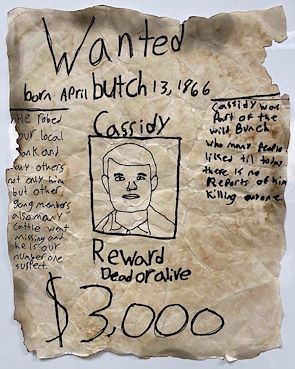 Wanted
born April butch 13, 1866
Cassidy
He robed
our local
bank and
many others
not only him
but other
gang members
also many
cattle went
missing and
he is our
number one
suspect.
Cassidy was
Part of the
wild Bunch
who many people
liked til today
there is no
Reports of him
killing anyone.
Reward
Dead or alive
$3,000